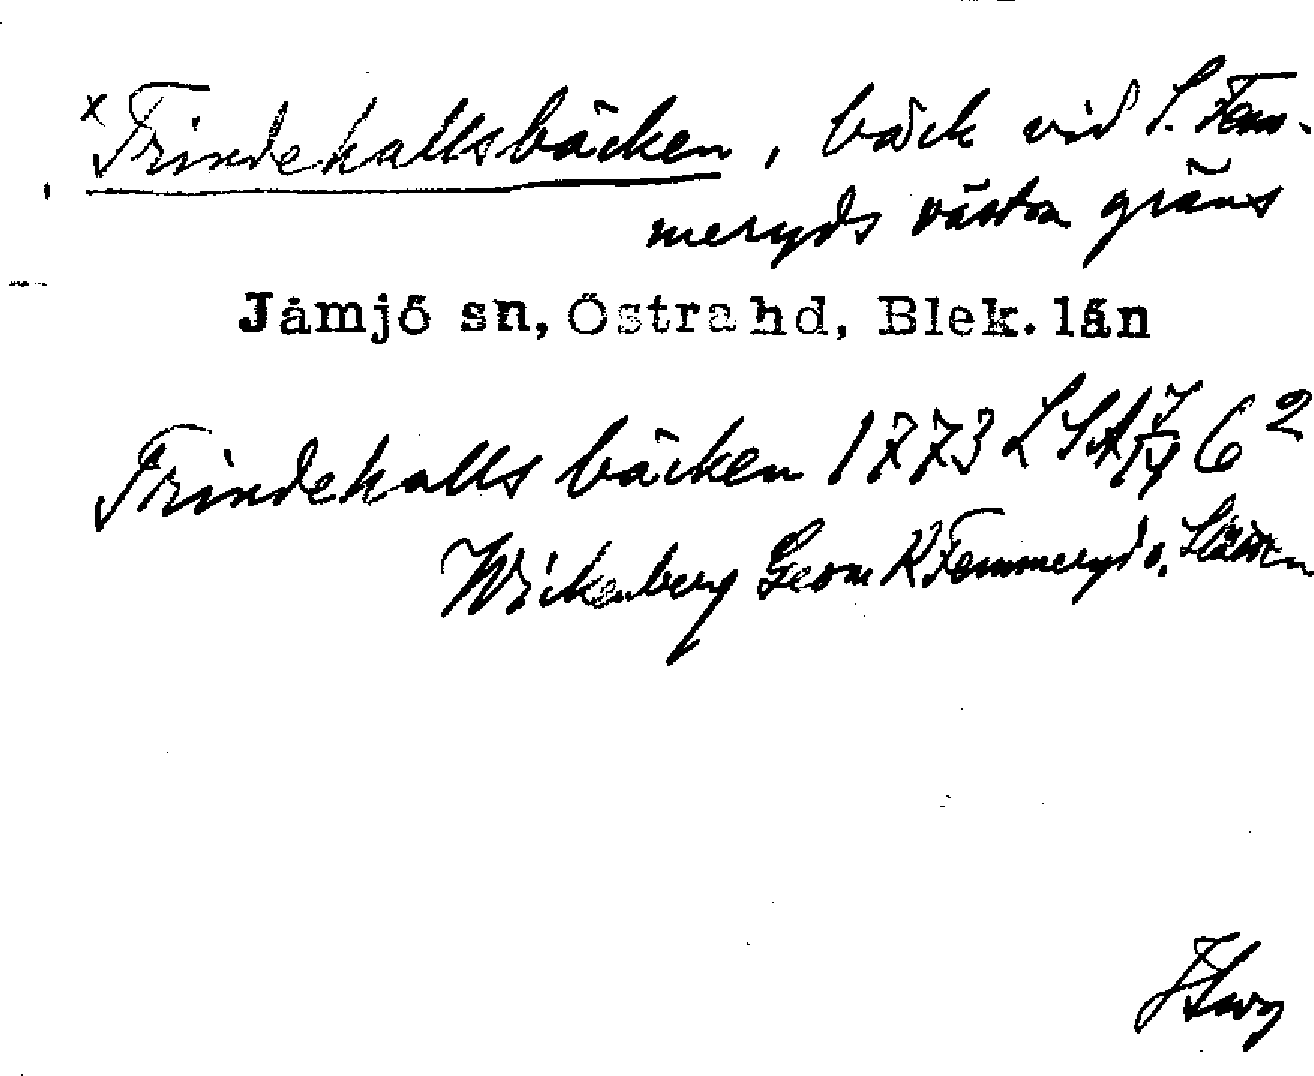 x Trindehallsbäcken, bäck vid S. Fem-
meryds västra gräns
Jämjö sn, Östra hd, Blek. län
Trindehalls bäcken 1773 LSA 6²
Wickenberg Geom K Femmeryd o.